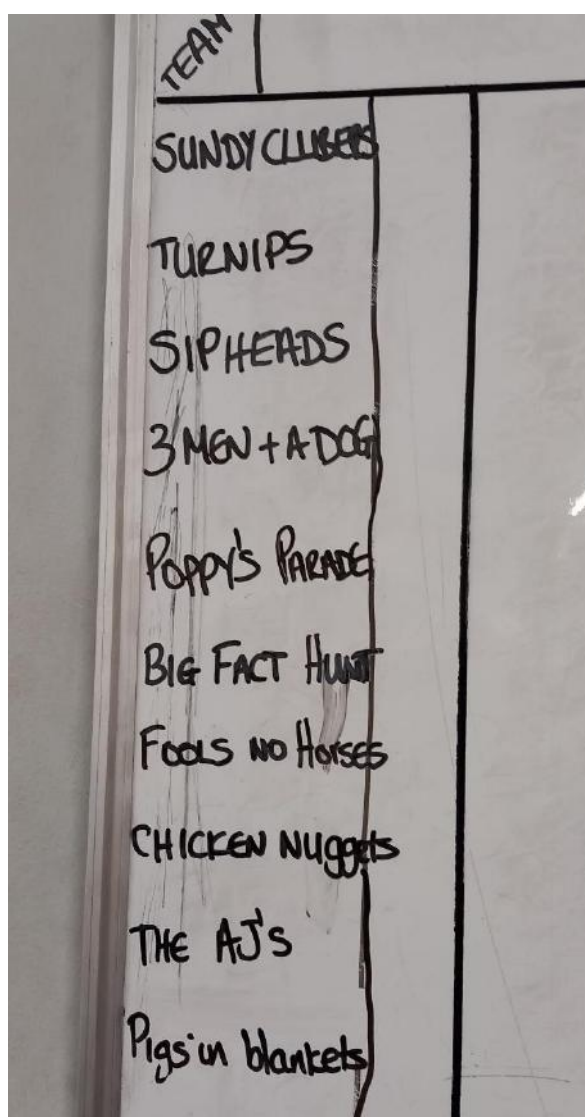 TEAM
SUNDY CLUBERS
TURNIPS
SIPHEADS
3 MEN + A DOG
POPPY'S PARADE
BIG FACT HUNT
FOOLS NO HORSES
CHICKEN NUggets
THE AJ'S
Pigs in blankets